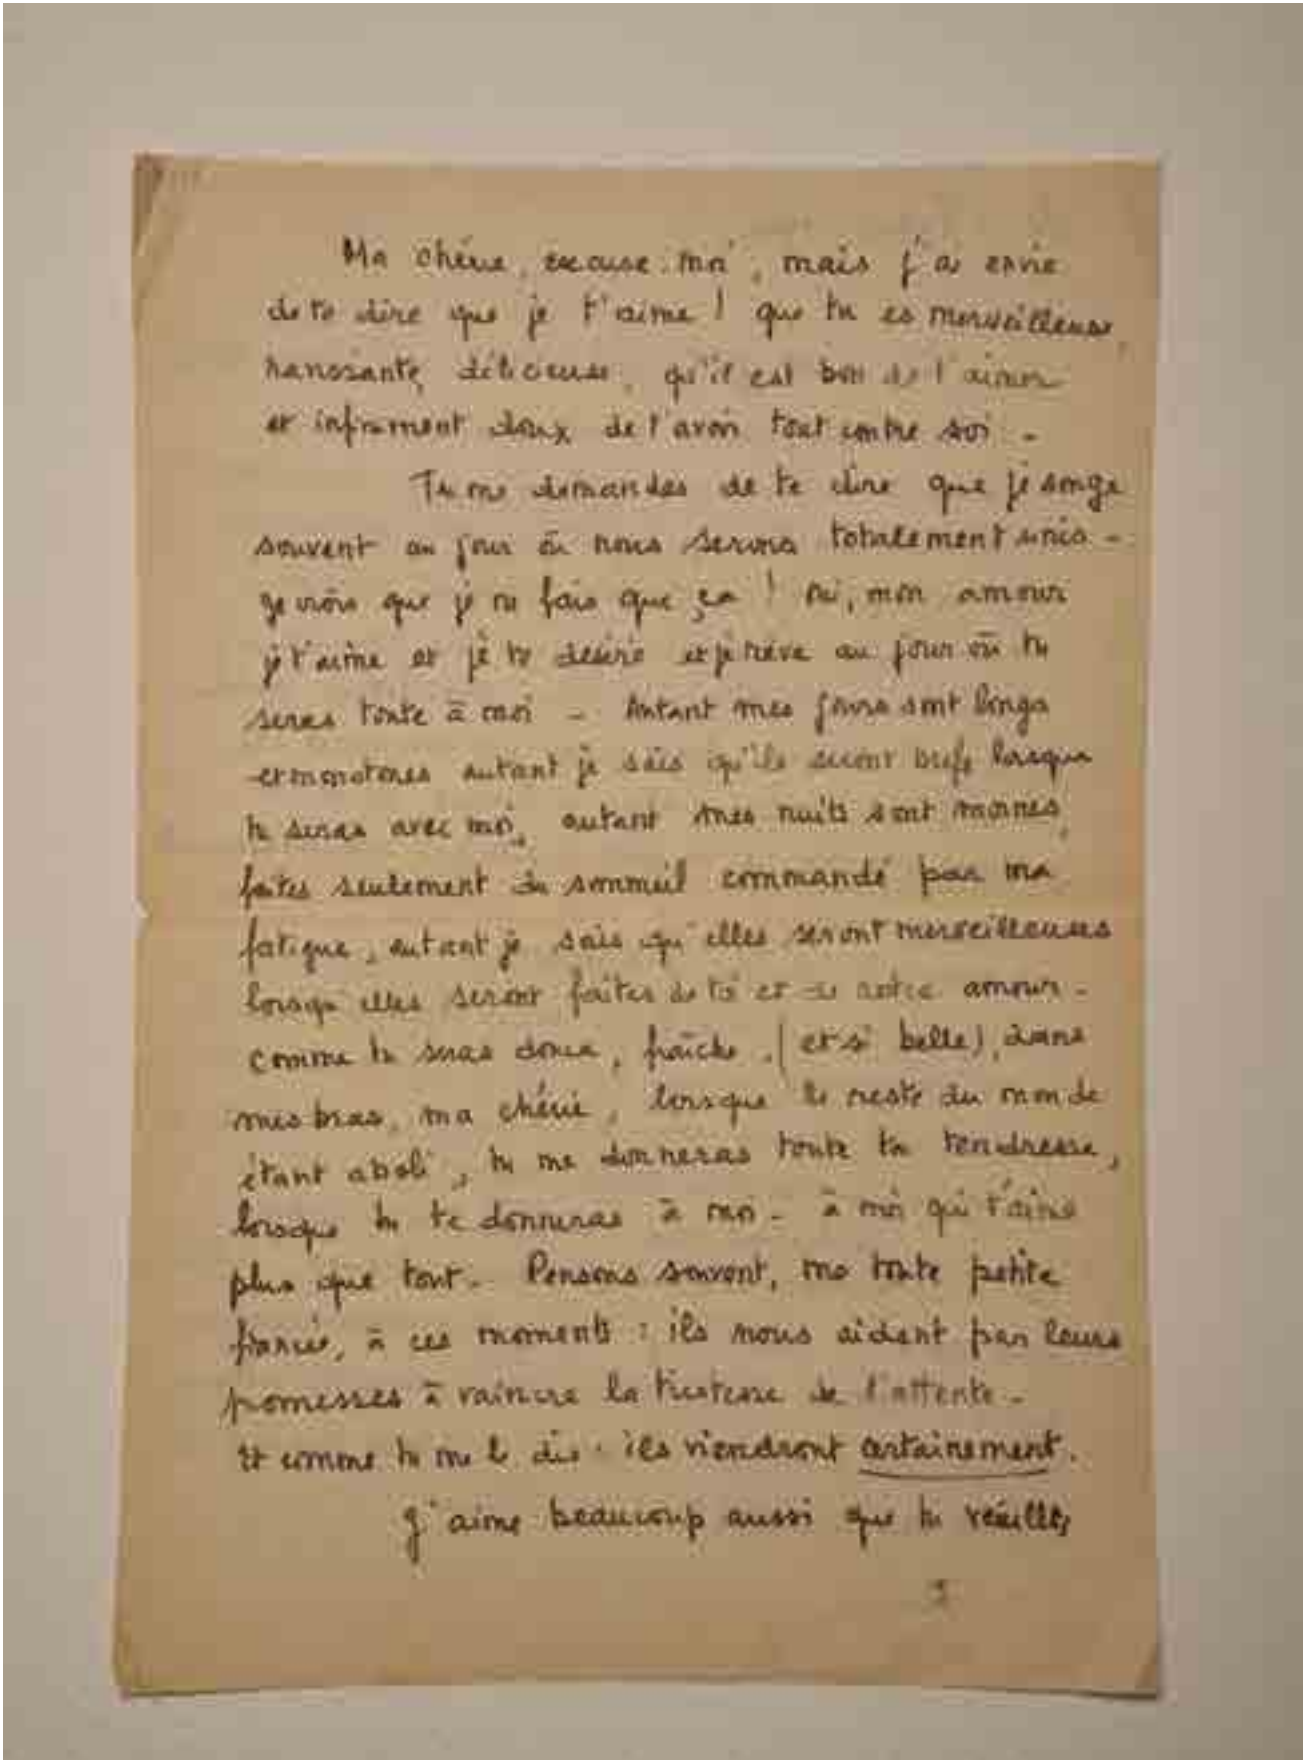 Ma chérie, excuse-moi, mais j'ai envie
de te dire que je t'aime ! que tu es merveilleuse,
ravissante, délicieuse, qu'il est bon de t'aimer
et infiniment doux de t'avoir tout contre soi -
Tu me demandes de te dire que je songe
souvent au jour où nous serons totalement unis -
Je crois que je ne fais que ça ! Oui, mon amour
je t'aime et je te désire et je rêve au jour où tu
seras toute à moi - Autant mes jours sont longs
et monotones autant je sais qu'ils seront brefs lorsque
tu seras avec moi, autant mes nuits sont mornes,
faites seulement du sommeil commandé par ma
fatigue, autant je sais qu'elles seront merveilleuses
lorsqu'elles seront faites de toi et de notre amour -
comme tu seras douce, fraîche, (et si belle), dans
mes bras, ma chérie, lorsque le reste du monde
étant aboli, tu me donneras toute ta tendresse,
lorsque tu te donneras à moi - à moi qui t'aime
plus que tout - Pensons souvent, ma toute petite
fiancée, à ces moments : ils nous aident par leurs
promesses à vaincre la tristesse de l'attente -
Et comme tu me le dis : ils viendront certainement.
J'aime beaucoup aussi que tu veuilles